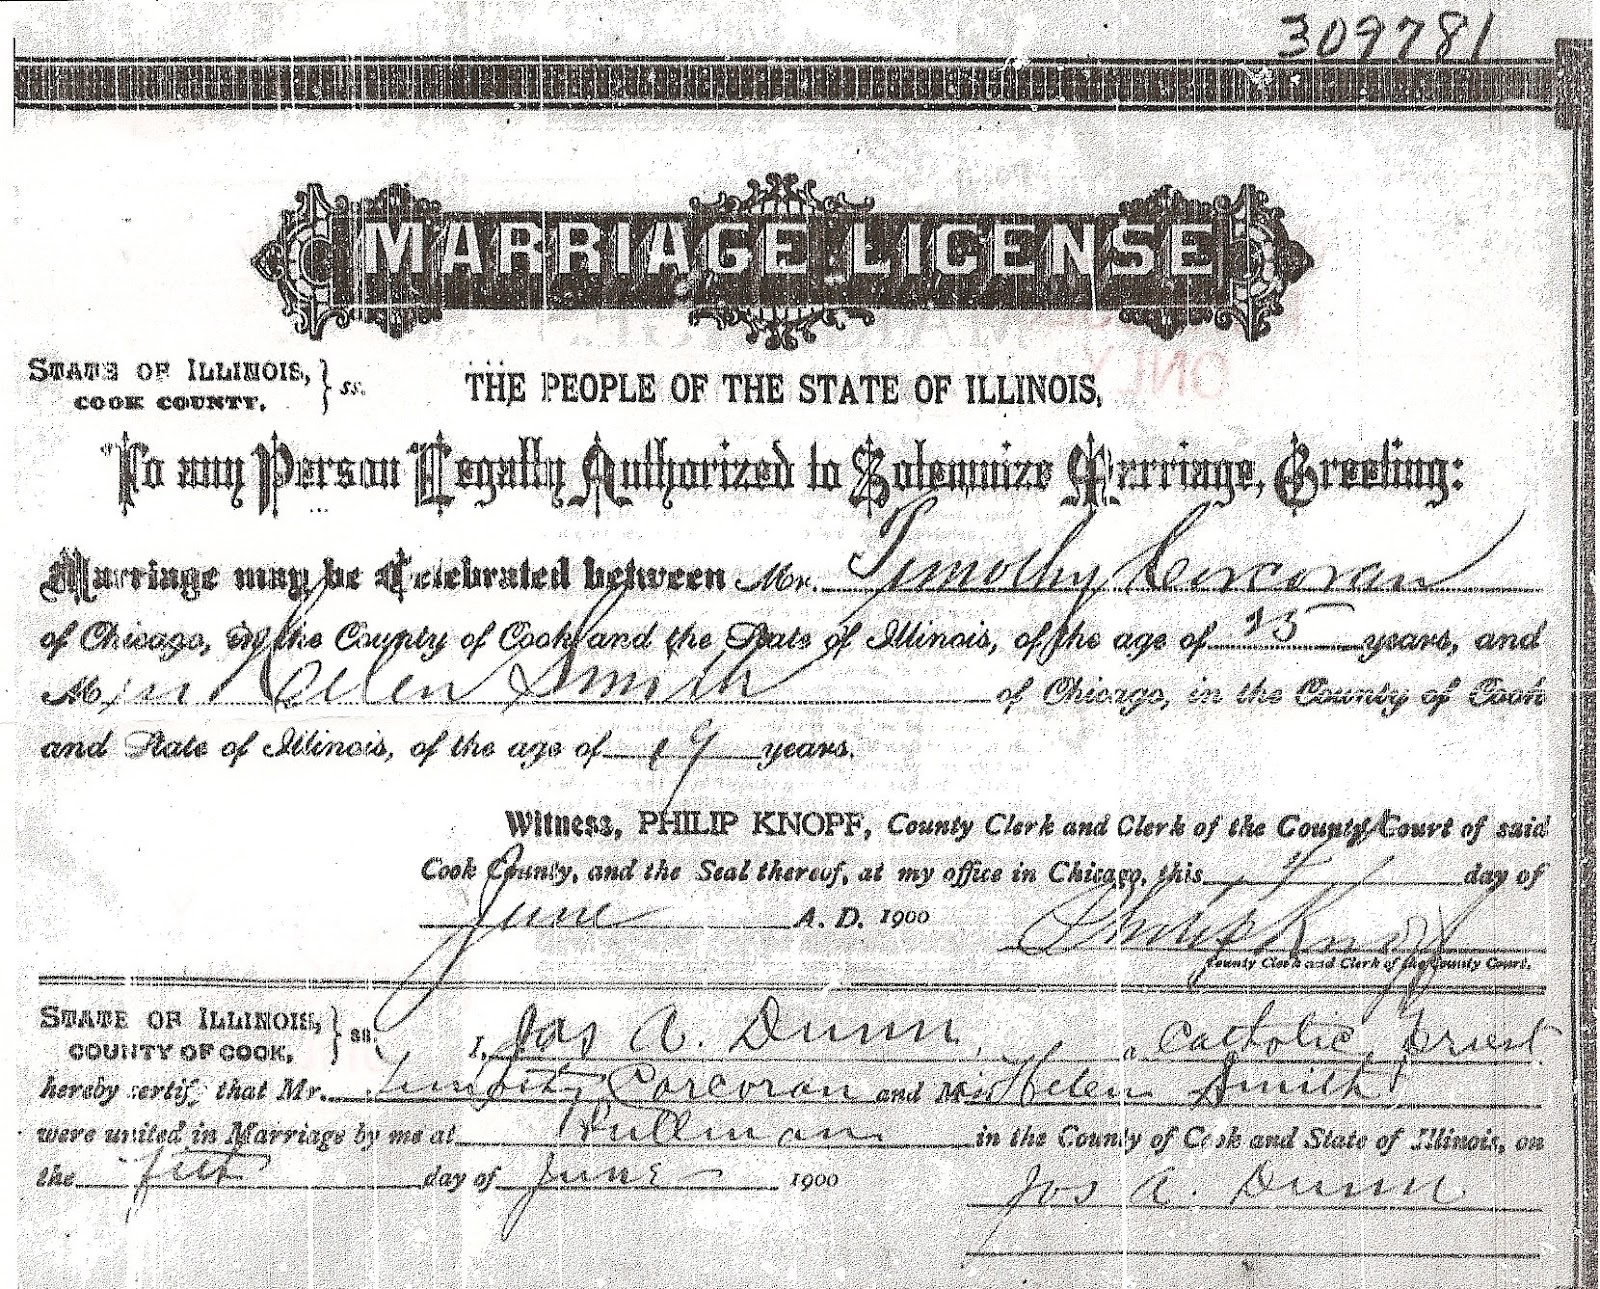 309781
MARRIAGE LICENSE
STATE OF ILLINOIS, } ss. THE PEOPLE OF THE STATE OF ILLINOIS,
COOK COUNTY.
To any Person Legally Authorized to Solemnize Marriage, Greeting:
Marriage may be Celebrated between Mr. Timothy Corcoran
of Chicago, in the County of Cook and the State of Illinois, of the age of 25 years, and
Miss Ellen Smith of Chicago, in the County of Cook
and State of Illinois, of the age of 19 years.
Witness, PHILIP KNOPF, County Clerk and Clerk of the County Court of said
Cook County, and the Seal thereof, at my office in Chicago, this day of
June A. D. 1900 Philip Knopf
County Clerk and Clerk of the County Court.
STATE OF ILLINOIS, } ss. I, Jos A. Dunn, a Catholic Priest
COUNTY OF COOK,
hereby certify that Mr. Timothy Corcoran and Miss Helen Smith
were united in Marriage by me at Pullman in the County of Cook and State of Illinois, on
the fifth day of June 1900 Jos A. Dunn
ONLY